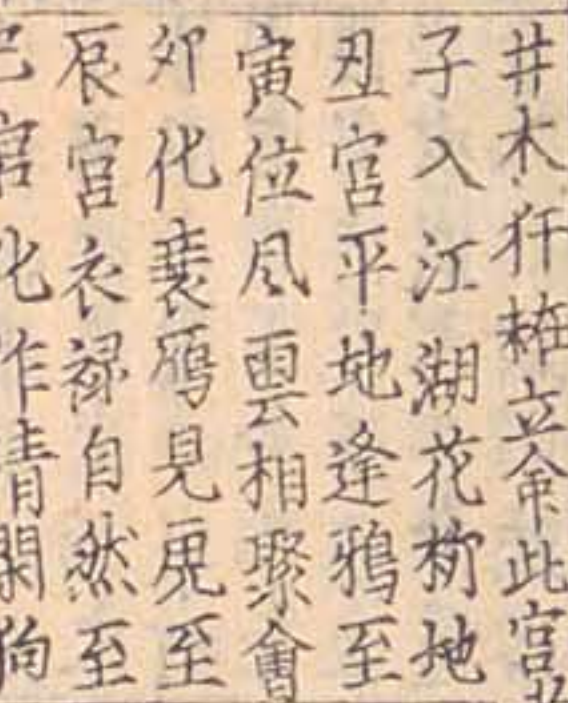 井木犴立命此宮
子入江湖花柳地
丑宮平地逢鴉至
寅位凨雲相聚會
夘化鴈見至
辰宮衣禄自然至
巳宮化作青閑狗